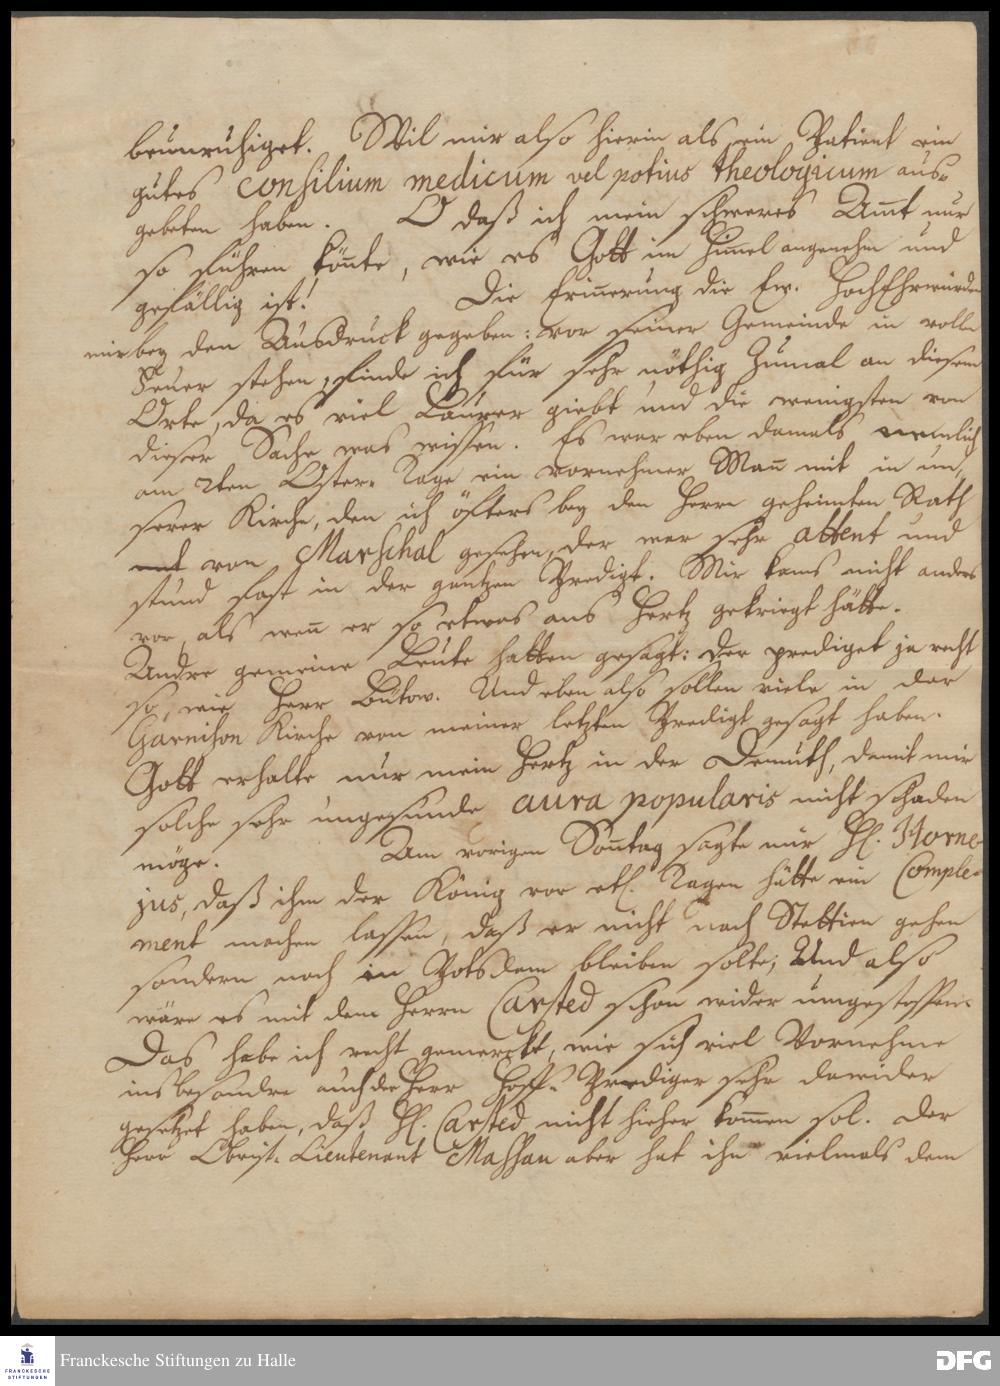 beunruhiget. Wil mir also hierin als ein Patient ein
gutes consilium medicum vel potius theologicum aus-
gebeten haben. O daß ich mein schweres Amt nur
so führen könte, wie es Gott im Himel angenehm und
gefällig ist! Die Erinerung die Ew. HochEhrwürden
mir bey den Ausdruck gegeben: vor seiner Gemeinde in volle
Feuer stehen, finde ich für sehr nöthig zumal an diesem
Orte, da es viel Laurer giebt und die wenigsten von
dieser Sache was wissen. Es war eben damals nemlich
am 2ten Oster-Tage ein vornehmer Man mit in un-
serer Kirche, den ich öfters bey den Herrn geheimten Rath
von Marschal gesehen, der war sehr attent und
stund fast in der gantzen Predigt. Mir kams nicht anders
vor, als wen er so etwas ans Hertz gekriegt hätte.
Andre gemeine Leute hatten gesagt: der prediget ja recht
so, wie Herr Bütow. Und eben also sollen viele in der
Garnison Kirche von meiner letzten Predigt gesagt haben.
Gott erhalte nur mein Hertz in der Demuth, damit mir
solche sehr ungesunde aura popularis nicht schaden
möge. Am vorigen Sontag sagte mir H. Horne-
jus, daß ihm der König vor etl. Tagen hätte ein Comple-
ment machen lassen, daß er nicht nach Stettien gehen
sondern noch in Potsdam bleiben solte; Und also
wäre es mit dem Herrn Carsted schon wider umgestossen.
Das habe ich recht gemerckt, wie sich viel Vornehme
insbesondre auch der Herr Hoff-Prediger sehr dawider
gesetzet haben, daß H. Carsted nicht hieher komen sol. Der
Herr Obrist-Lieutenant Massau aber hat ihn vielmals dem
Franckesche Stiftungen zu Halle
FRANCKESCHE STIFTUNGEN
DFG